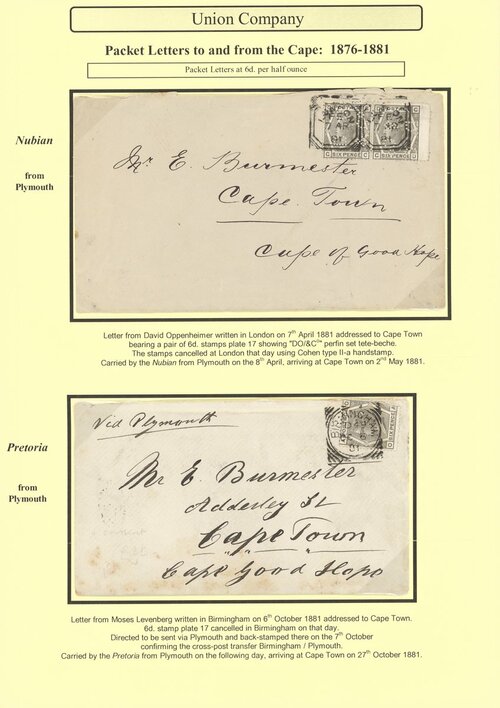 Union Company
Packet Letters to and from the Cape: 1876-1881
Packet Letters at 6d. per half ounce
Nubian
from
Plymouth
SIX PENCE
SIX PENCE
Mr E. Burmester
Cape Town
Cape of Good Hope
Letter from David Oppenheimer written in London on 7th April 1881 addressed to Cape Town
bearing a pair of 6d. stamps plate 17 showing "DO/&Co" perfin set tete-beche.
The stamps cancelled at London that day using Cohen type II-a handstamp.
Carried by the Nubian from Plymouth on the 8th April, arriving at Cape Town on 2nd May 1881.
Pretoria
from
Plymouth
Via Plymouth
SIX PENCE
Mr E. Burmester
Adderley St
Cape Town
Cape Good Hope
Letter from Moses Levenberg written in Birmingham on 6th October 1881 addressed to Cape Town.
6d. stamp plate 17 cancelled in Birmingham on that day.
Directed to be sent via Plymouth and back-stamped there on the 7th October
confirming the cross-post transfer Birmingham / Plymouth.
Carried by the Pretoria from Plymouth on the following day, arriving at Cape Town on 27th October 1881.